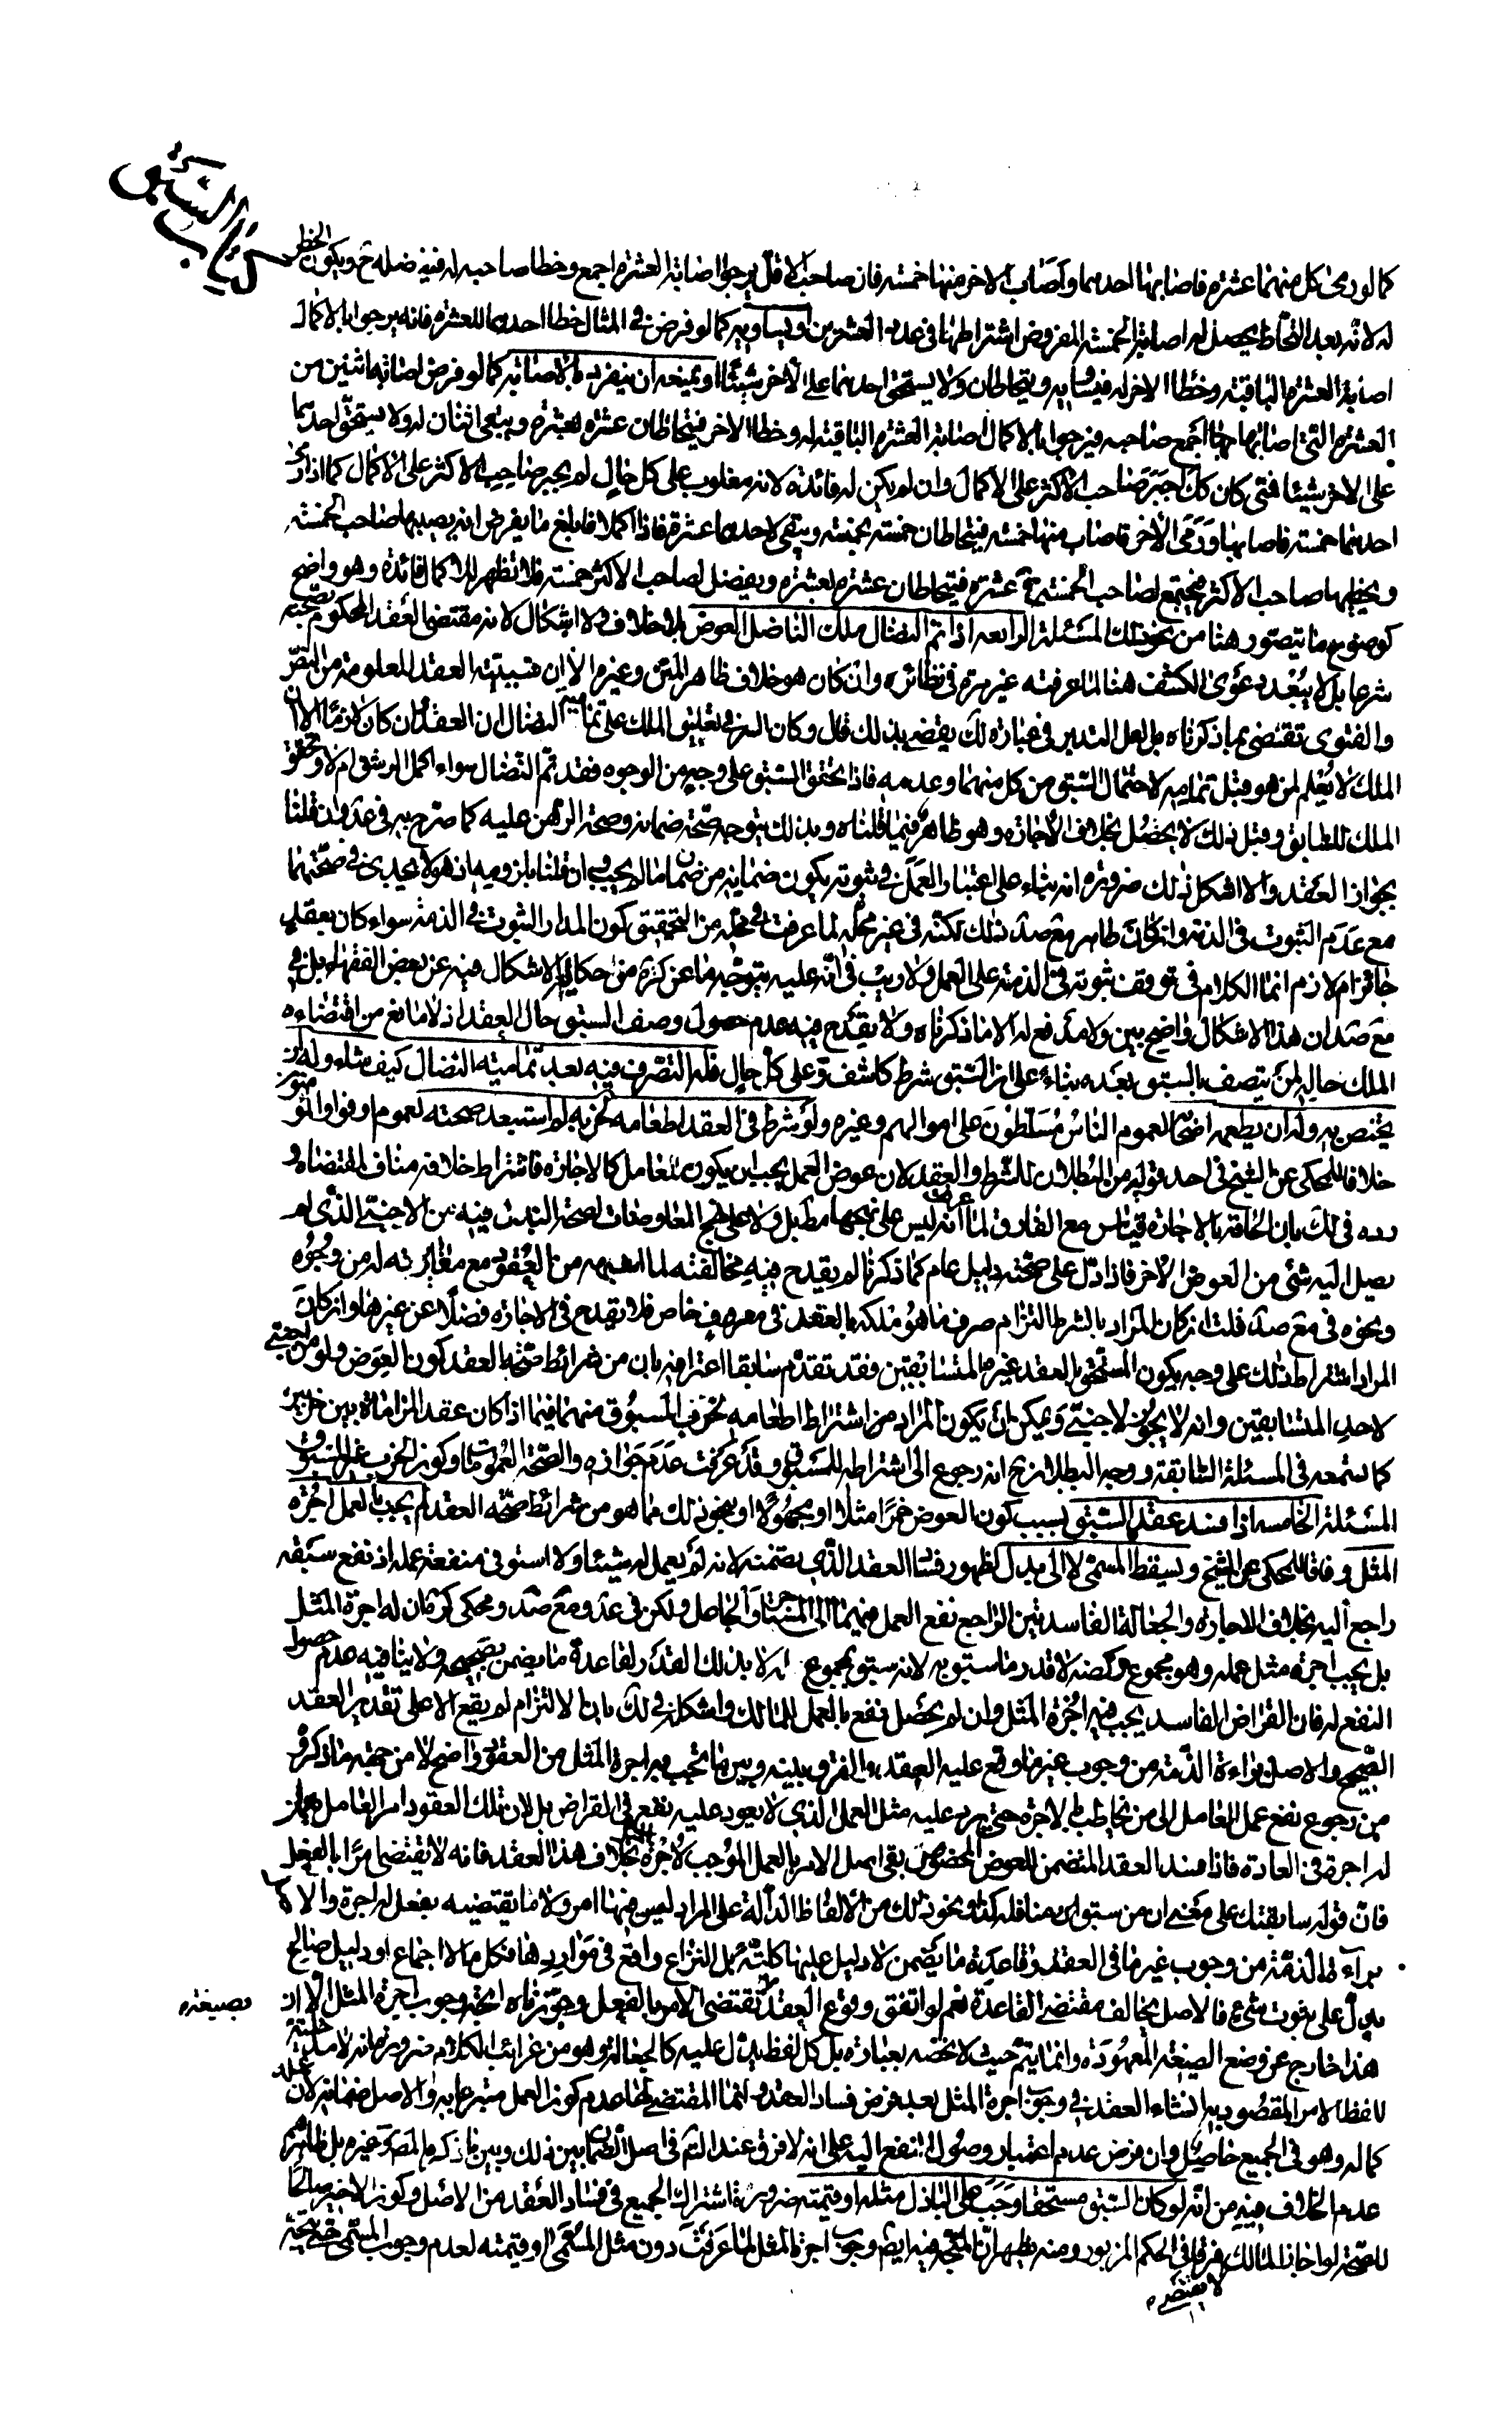 كتاب السبق
كما لو رمى كل منهما عشرة فاصابها احدهما واصاب الاخر منها خمسة فان صاحب الاقل يرجوا اصابة العشرة اجمع وخطا صاحبه له فيفضله ح ويكون الحظ
له لانه بعد التحاط يحصل له اصابة الخمسة المفروض اشتراطها في عدد العشرين او يساويه كما لو فرض في المثال خطا احدهما للعشرة فانه يرجوا بالاكمال
اصابة العشرة الباقية وخطا الاخر له فيساويه ويتحاطان ولا يستحق احدهما على الاخر شيئا او يمنعه ان ينفرد بالاصابة كما لو فرض اصابة اثنين من
العشرة التي اصابها اجمع صاحبه فيرجوا بالاكمال اصابة العشرة الباقية له وخطا الاخر فيتحاطان عشرة بعشرة ويبقى اثنان له ولا يستحق احدهما
على الاخر شيئا فمتى كان كك اجبر صاحب الاكثر على الاكمال وان لم يكن له فائدة لانه مغلوب على كل حال لم يجبر صاحب الاكثر على الاكمال كما اذا رمى
احدهما خمسة فاصابها ورمى الاخر فاصاب منها خمسة فيتحاطان خمسة بخمسة ويبقى لاحدهما عشرة فاذا اكملا فابلغ ما يفرض انه يصيبها صاحب الخمسة
ويخطيها صاحب الاكثر فيجتمع لصاحب الخمسة ح عشرة فيتحاطان عشرة بعشرة ويفضل لصاحب الاكثر خمسة فلا تظهر للاكمال فائدة وهو واضح
كوضوح ما يتصور هنا من نحو ذلك المسئلة الرابعة اذا تم النضال ملك الناضل العوض بلا خلاف ولا اشكال لانه مقتضى العقد المحكوم بصحته
شرعا بل لا يبعد دعوى الكشف هنا لما عرفته غير مرة في نظائره وان كان هو خلاف ظاهر المتن وغيره الا ان سببية العقد المعلومة من النص
والفتوى تقتضى بما ذكرناه بل لعل التدبر في عبارة لك يقضى بذلك قال وكان السر في تعليق الملك على تمامية النضال ان العقد وان كان لازما الا ان
الملك لا يعلم لمن هو قبل تمامه لاحتمال السبق من كل منهما وعدمه فاذا تحقق السبق على وجه من الوجوه فقد تم النضال سواء اكمل الرشق ام لا وتحقق
الملك للسابق وقبل ذلك لا يحصل بخلاف الاجارة وهو ظاهر فيما قلناه وبذلك يتوجه صحة ضمانه وصحة الرهن عليه كما صرح به في عد وان قلنا
بجواز العقد والا اشكل ذلك ضرورة انه بناء على اعتبار العمل في ثبوته يكون ضمانه من ضمان ما لم يجب وان قلنا بلزومه اذ هو لا يجدى في صحتهما
مع عدم الثبوت في الذمة وان كان ظاهر مع صد ذلك لكنه في غير محله لما عرفت في محله من التحقيق كون المدار الثبوت في الذمة سواء كان بعقد
جائز ام لازم انما الكلام في توقف ثبوته في الذمة على العمل ولا ريب في انه عليه يتوجه ما عن كره من حكاية الاشكال فيه عن بعض الفقهاء بل في
مع صد ان هذا الاشكال واضح بين ولا مدفع له الا ما ذكرناه ولا يقدح فيه عدم حصول وصف السبق حال العقد اذ لا مانع من اقتضائه
الملك حاله لمن يتصف بالسبق بعده بناء على ان السبق شرط كاشف وعلى كل حال فله التصرف فيه بعد تمامية النضال كيف شاء وله ان
يختص به وله ان يطعمه اصحابه لعموم الناس مسلطون على اموالهم وغيره ولو شرط في العقد اطعامه لحزبه لم استبعد صحته لعموم اوفوا والمؤمنون
خلافا للمحكى عن الشيخ في احد قوليه من البطلان للشرط والعقد لان عوض العمل يجب ان يكون للعامل كالاجارة فاشتراط خلافه مناف لمقتضاه و
رده في لك بان الحاقه بالاجارة قياس مع الفارق لما عرفت انه ليس على نهجها مط بل ولا على نهج المعاوضات لصحة البذل فيه من الاجنبي الذي لم
يصل اليه شئ من العوض الاخر فاذا دل على صحته دليل عام كما ذكرنا لم يقدح فيه مخالفته لما اشبهه من العقود مع مغايرته له من وجوه
ونحوه في مع صد قلت ان كان المراد بالشرط التزام صرف ما هو ملكه بالعقد في مصرف خاص فلا يقدح في الاجارة فضلا عن غيرها وان كان
المراد اشتراط ذلك على وجه يكون المستحق بالعقد غير المتسابقين فقد تقدم سابقا اعترافه بان من شرائط صحة العقد كون العوض ولو من اجنبي
لاحد المتسابقين وانه لا يجوز لاجنبي ويمكن ان يكون المراد من اشتراط اطعامه لحزب المسبوق منهما فيما اذا كان عقد المراماة بين حزبين
كما ستمعه في المسئلة السابقة ووجه البطلان ح انه رجوع الى اشتراطه للمسبوق وقد عرفت عدم جوازه والصحة العمومات وكون الحزب غير المسبوق
المسئلة الخامسة اذا فسد عقد السبق بسبب كون العوض خمرا مثلا او مجهولا او نحو ذلك مما هو من شرائط صحة العقد لم يجب بالعمل اجرة
المثل وفاقا للمحكى عن الشيخ ويسقط المسمى لا الى بدل لظهور فساد العقد الذي تضمنه لانه لم يعمل له شيئا ولا استوفى منفعة عمله اذ نفع سبقه
راجع اليه بخلاف الاجارة والجعالة الفاسدتين الراجع نفع العمل فيهما الى المستاجر والجاعل ولكن في عد ومع صد ومحكى كره ان له اجرة المثل
بل يجب اجرة مثل عمله وهو مجموع ركضه لا قدر ما سبق به لانه سبق بمجموع لا بذلك القدر لقاعدة ما يضمن بصحيحه ولا ينافيه عدم حصول
النفع له فان القراض الفاسد يجب فيه اجرة المثل وان لم يحصل نفع بالعمل للمالك واشكله في لك بان الالتزام لم يقع الا على تقدير العقد
الصحيح والاصل براءة الذمة من وجوب غير ما وقع عليه العقد والفرق بينه وبين ما تجب به اجرة المثل من العقود واضح لا من جهة ما ذكروه
من رجوع نفع عمل العامل الى من يخاطب بالاجرة حتى يرد عليه مثل العمل الذي لا يعود عليه نفع في القراض بل لان تلك العقود امر العامل بعمل
له اجرة في العادة فاذا فسد العقد المتضمن للعوض المخصوص بقى اصل الامر بالعمل الموجب لاجرة المثل بخلاف هذا العقد فانه لا يقتضى امرا بالفعل
فان قوله سابقتك على معنى ان من سبق له كذا ونحو ذلك من الالفاظ الدالة على المراد ليس فيها امر ولا ما يقتضيه بفعل له اجرة والاصل
براءة الذمة من وجوب غير ما في العقد وقاعدة ما يضمن لا دليل عليها كلية بل النزاع واقع في مواردها فكل ما لا اجماع او دليل صالح
يدل على ثبوت شئ فالاصل يخالف مقتضى القاعدة نعم لو اتفق وقوع العقد بصيغة تقتضى الامر بالفعل وجوزناه اتجه وجوب اجرة المثل الا ان
هذا خارج عن وضع الصيغة المعهودة وانما يتم حيث لا نخصه بعبارة بل كل لفظ يدل عليه كالجعالة وهو من غرائب الكلام ضرورة انه لا مدخلية
للفظ الامر المقصود به انشاء العقد في وجوب اجرة المثل بعد فرض فساد العقد وانما المقتضى لها عدم كون العمل متبرعا به والاصل ضمانه لان عمله
كماله وهو في الجميع حاصل وان فرض عدم اعتبار وصول النفع اليه على انه لا فرق عند التم في اصل الضمان بين ذلك وبين ما ذكره المص وغيره بل ظاهرهم
عدم الخلاف فيه من انه لو كان السبق مستحقا وجب على الباذل مثله او قيمته ضرورة اشتراك الجميع في فساد العقد من الاصل وكون الاخير صالحا
للصحة لو اجاز المالك لا يقتضى فرقا في الحكم المزبور ومنه يظهر ان المتجه فيه ايضا وجوب اجرة المثل لما عرفت دون مثل المسمى او قيمته لعدم وجوب المسمى